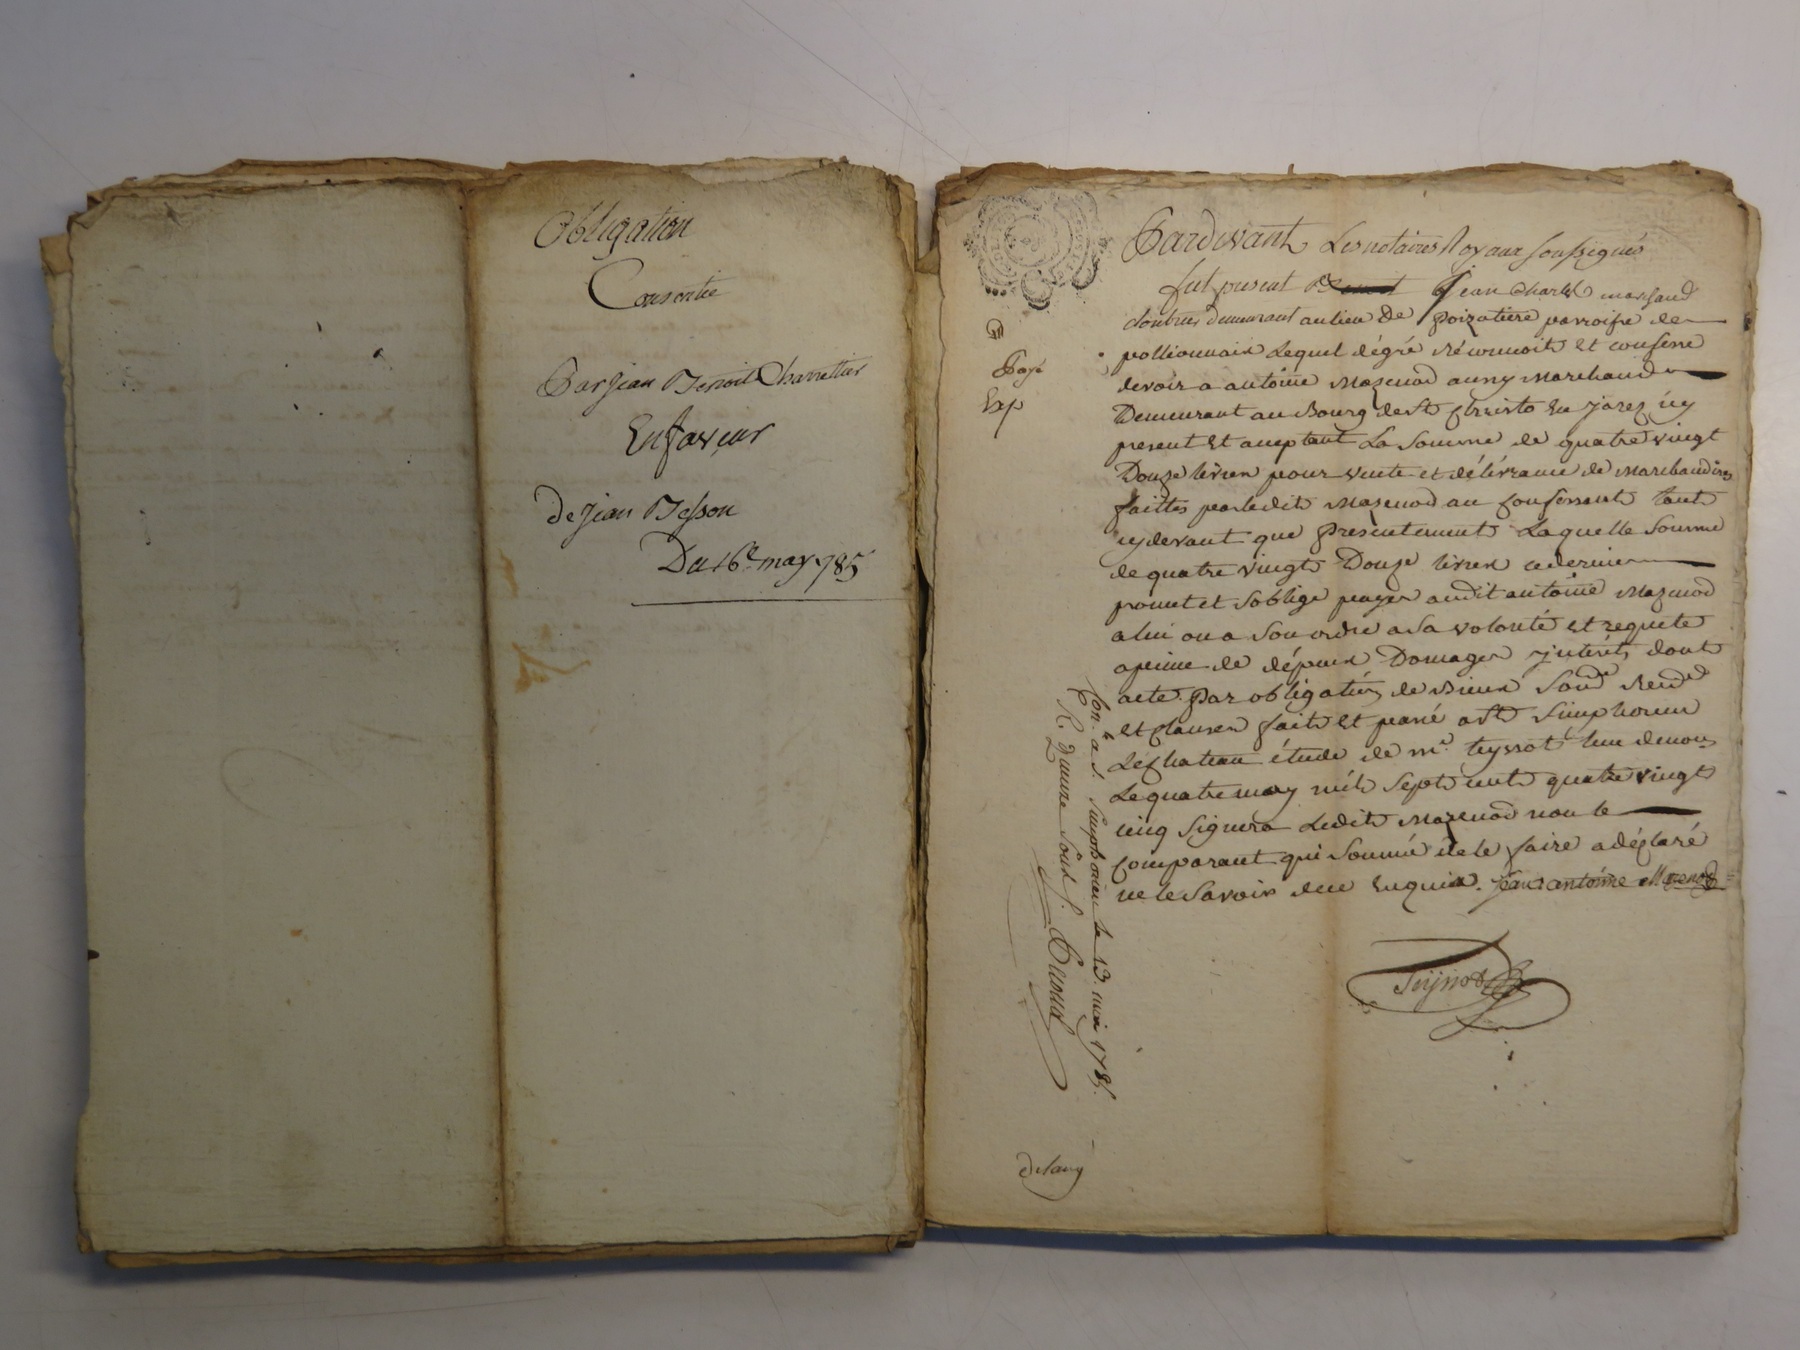 Obligation
Consentie
Par Jean Benoit Charretier
En faveur
de Jean Besson
Du 16e. may 785
Pardevant Les notaires Royaux soussignés
fut present Jean Charles marchand
demeurant au lieu de Poizatiere parroisse de
pollionnair Lequel dégré réconnoit et confesse
devoir a antoine Mazenod aussy Marchand
Demeurant au Bourg de St Christo En Jarez icy
present et aceptant La somme de quatre vingt
Douze livres pour vente et délivrance de Marchandises
faittes par ledit Mazenod au confessant tant
cydevant que presentement Laquelle somme
de quatre vingt Douze livres ce dernier
promet et soblige payer audit antoine Mazenod
a lui ou a son ordre a sa volonté et requete
apeine de dépens Domages jnterêts dont
acte par obligation de Biens soud. Rend.
et Clauses fait et passé a St Simphorien
Le Chateau étude de me. teyssot l'un de nous
Le quatre may mil sept cent quatre vingt
cinq signera Ledit Mazenod non le
comparant qui sommé de le faire a déclaré
ne le savoir de ce Enquis. Jean antoine Mazenod
Teyssot
Payé
Exp
Con.le a S. Simphorien le 13 mai 1785.
R. quinze sous s.